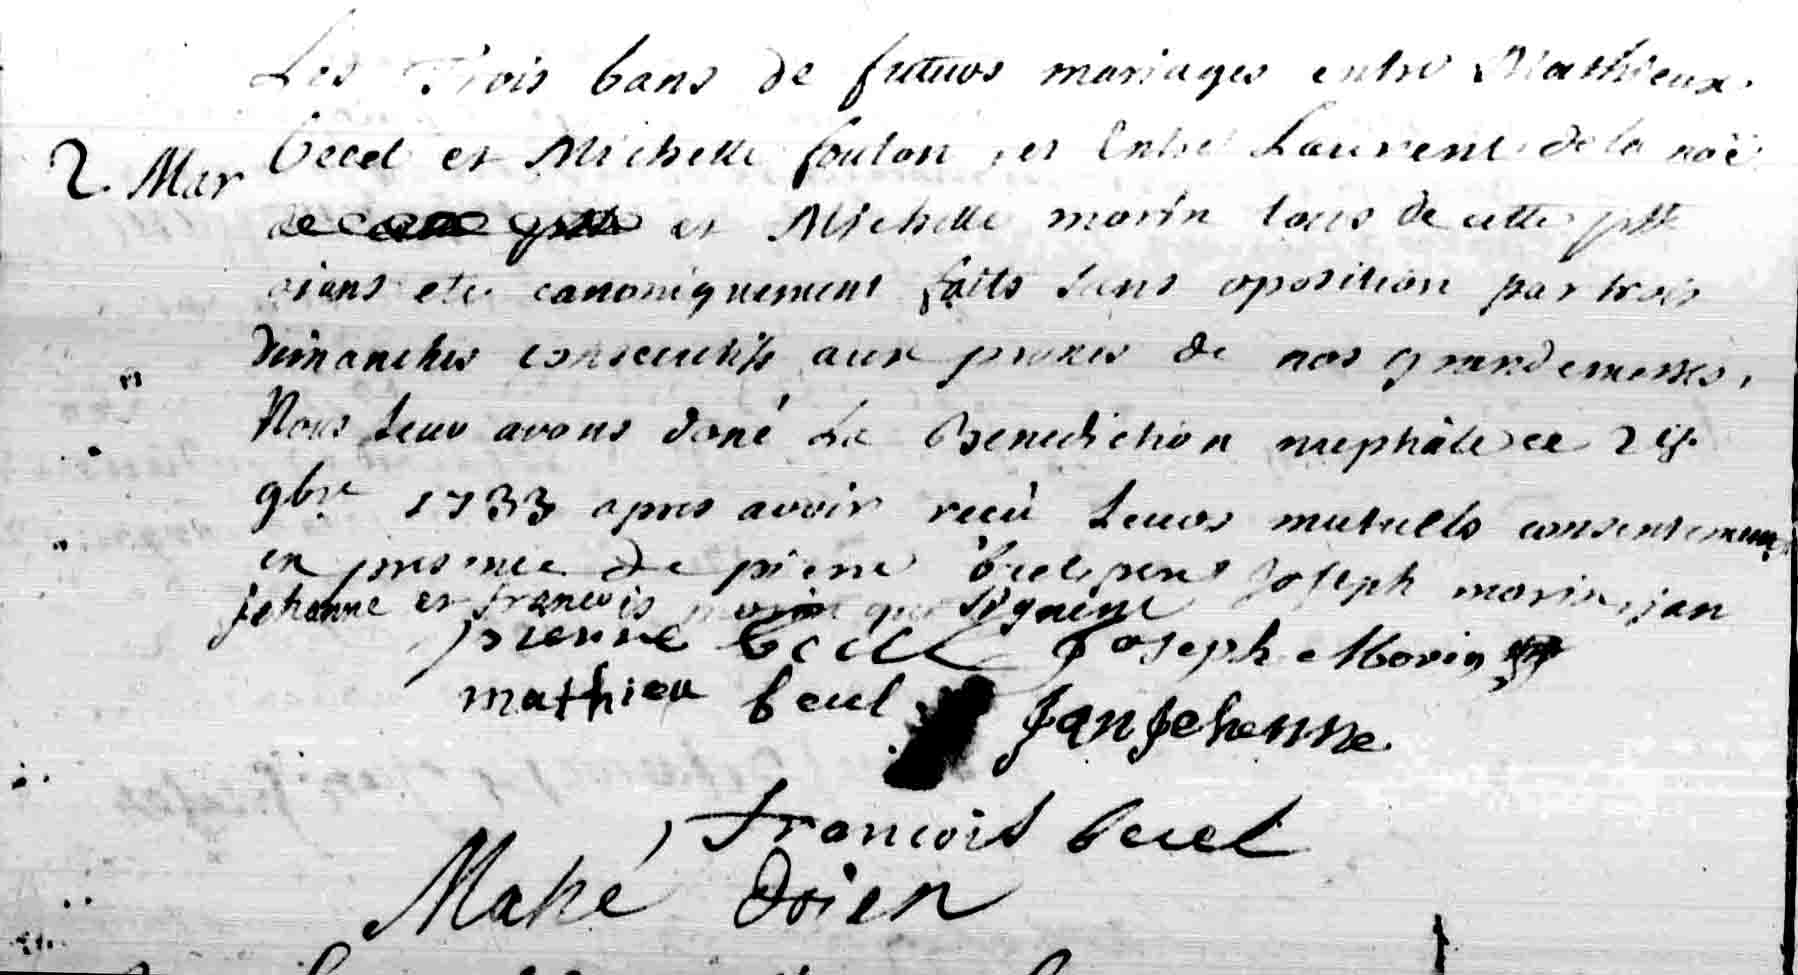 Les Trois bans de futurs mariages entre Mathieux
2 Mar
becel et Michelle foulon et Entre Laurent de la noë
et Michelle morin tous de cette psse
aians eté canoniquement faits sans oposition par trois
dimanches consecutifs aux prones de nos grandemesses,
Nous leur avons doné La Benediction nuptiale ce
9bre 1733 apres avoir reçu leurs mutuells consentements
en presence de pierre Joseph morin, jan
jehanne et francois qui signent
pierre becel Joseph Morin
mathieu becel Jan Jehenne
Francois becel
Mahé doien